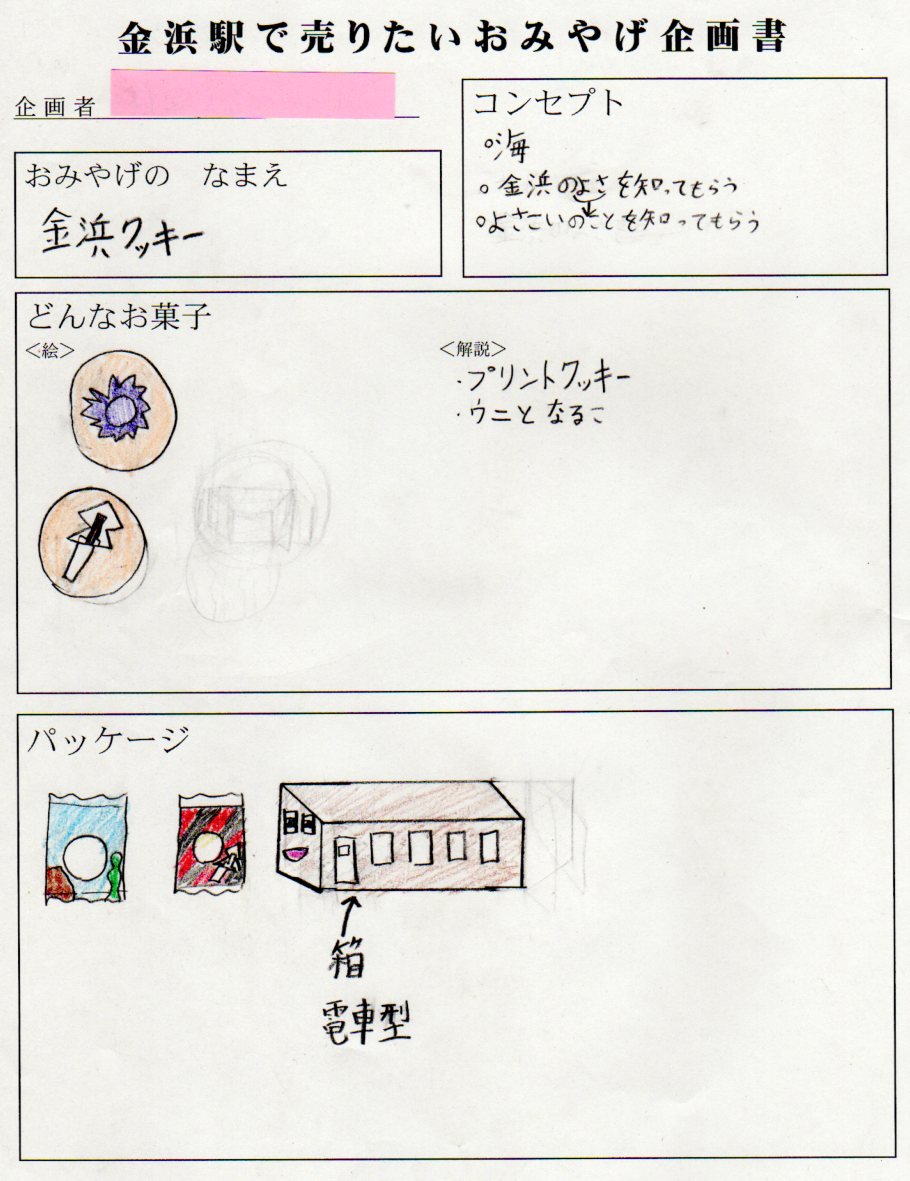 金浜駅で売りたいおみやげ企画書
企画者
コンセプト
○海
○金浜のよさを知ってもらう
○よさこいのことを知ってもらう
おみやげの なまえ
金浜クッキー
どんなお菓子
＜絵＞
＜解説＞
・プリントクッキー
・ウニと なるこ
パッケージ
箱
電車型